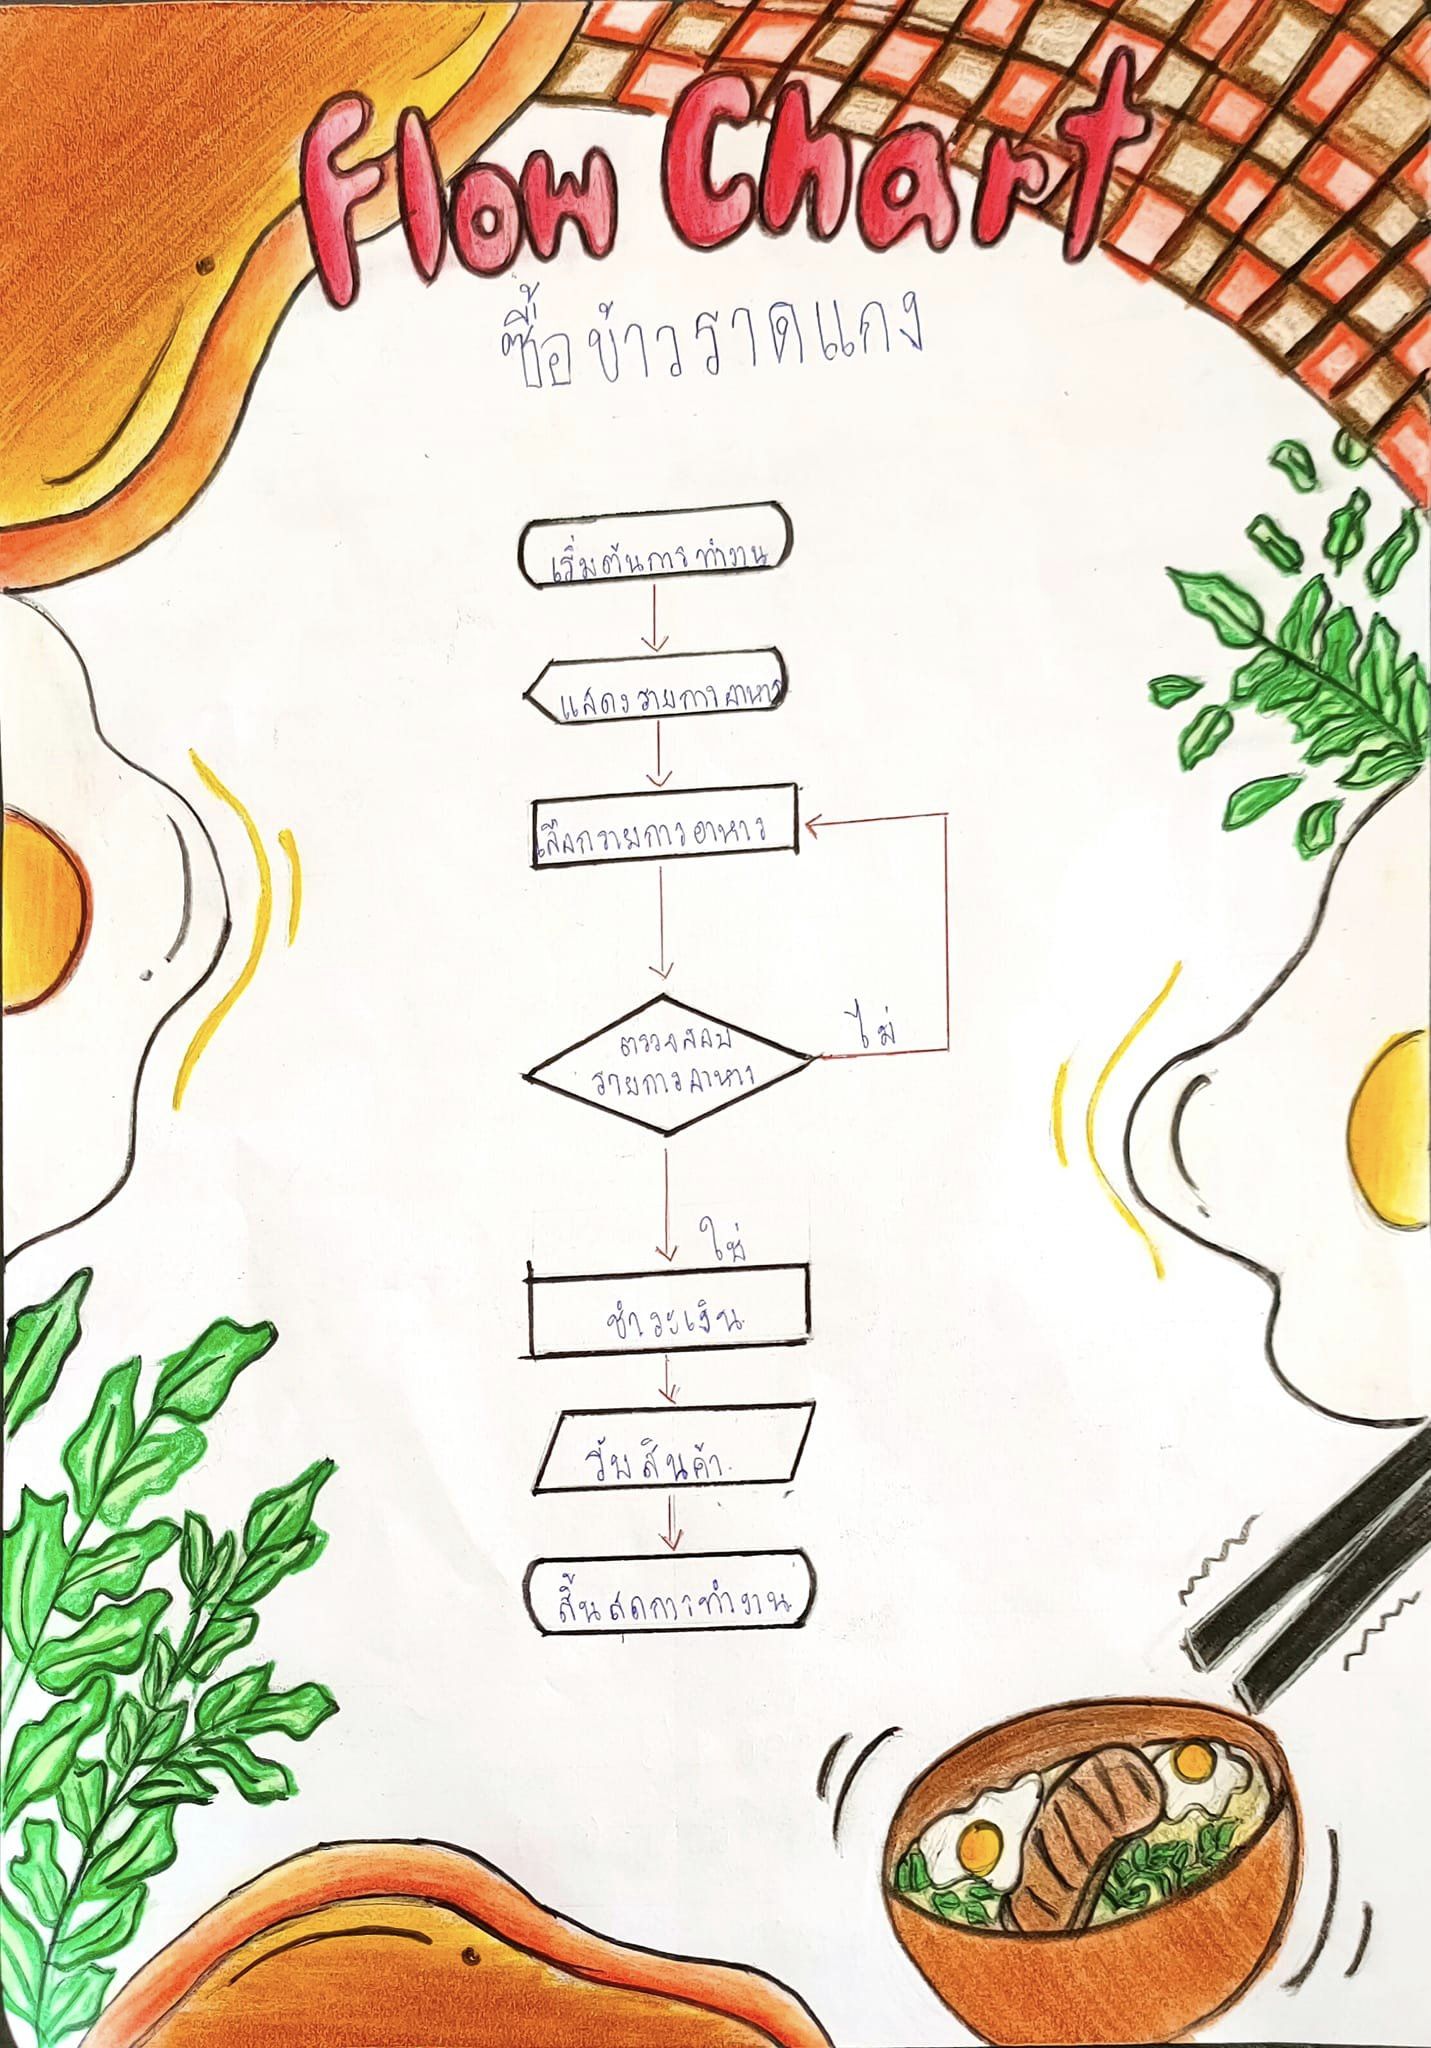 Flow Chart
ซื้อข้าวราดแกง
เริ่มต้นการทำงาน
แสดงรายการอาหาร
เลือกรายการอาหาร
ตรวจสอบ
รายการอาหาร
ไม่
ใช่
ชำระเงิน
รับสินค้า
สิ้นสุดการทำงาน